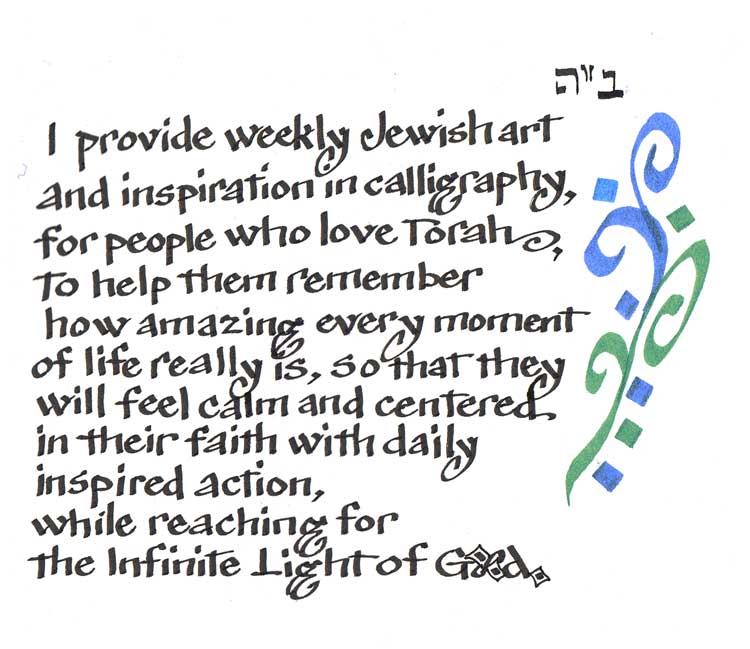 ב"ה
I provide weekly Jewish art
and inspiration in calligraphy,
for people who love Torah,
to help them remember
how amazing every moment
of life really is, so that they
will feel calm and centered
in their faith with daily
inspired action,
while reaching for
the Infinite Light of G‑d.